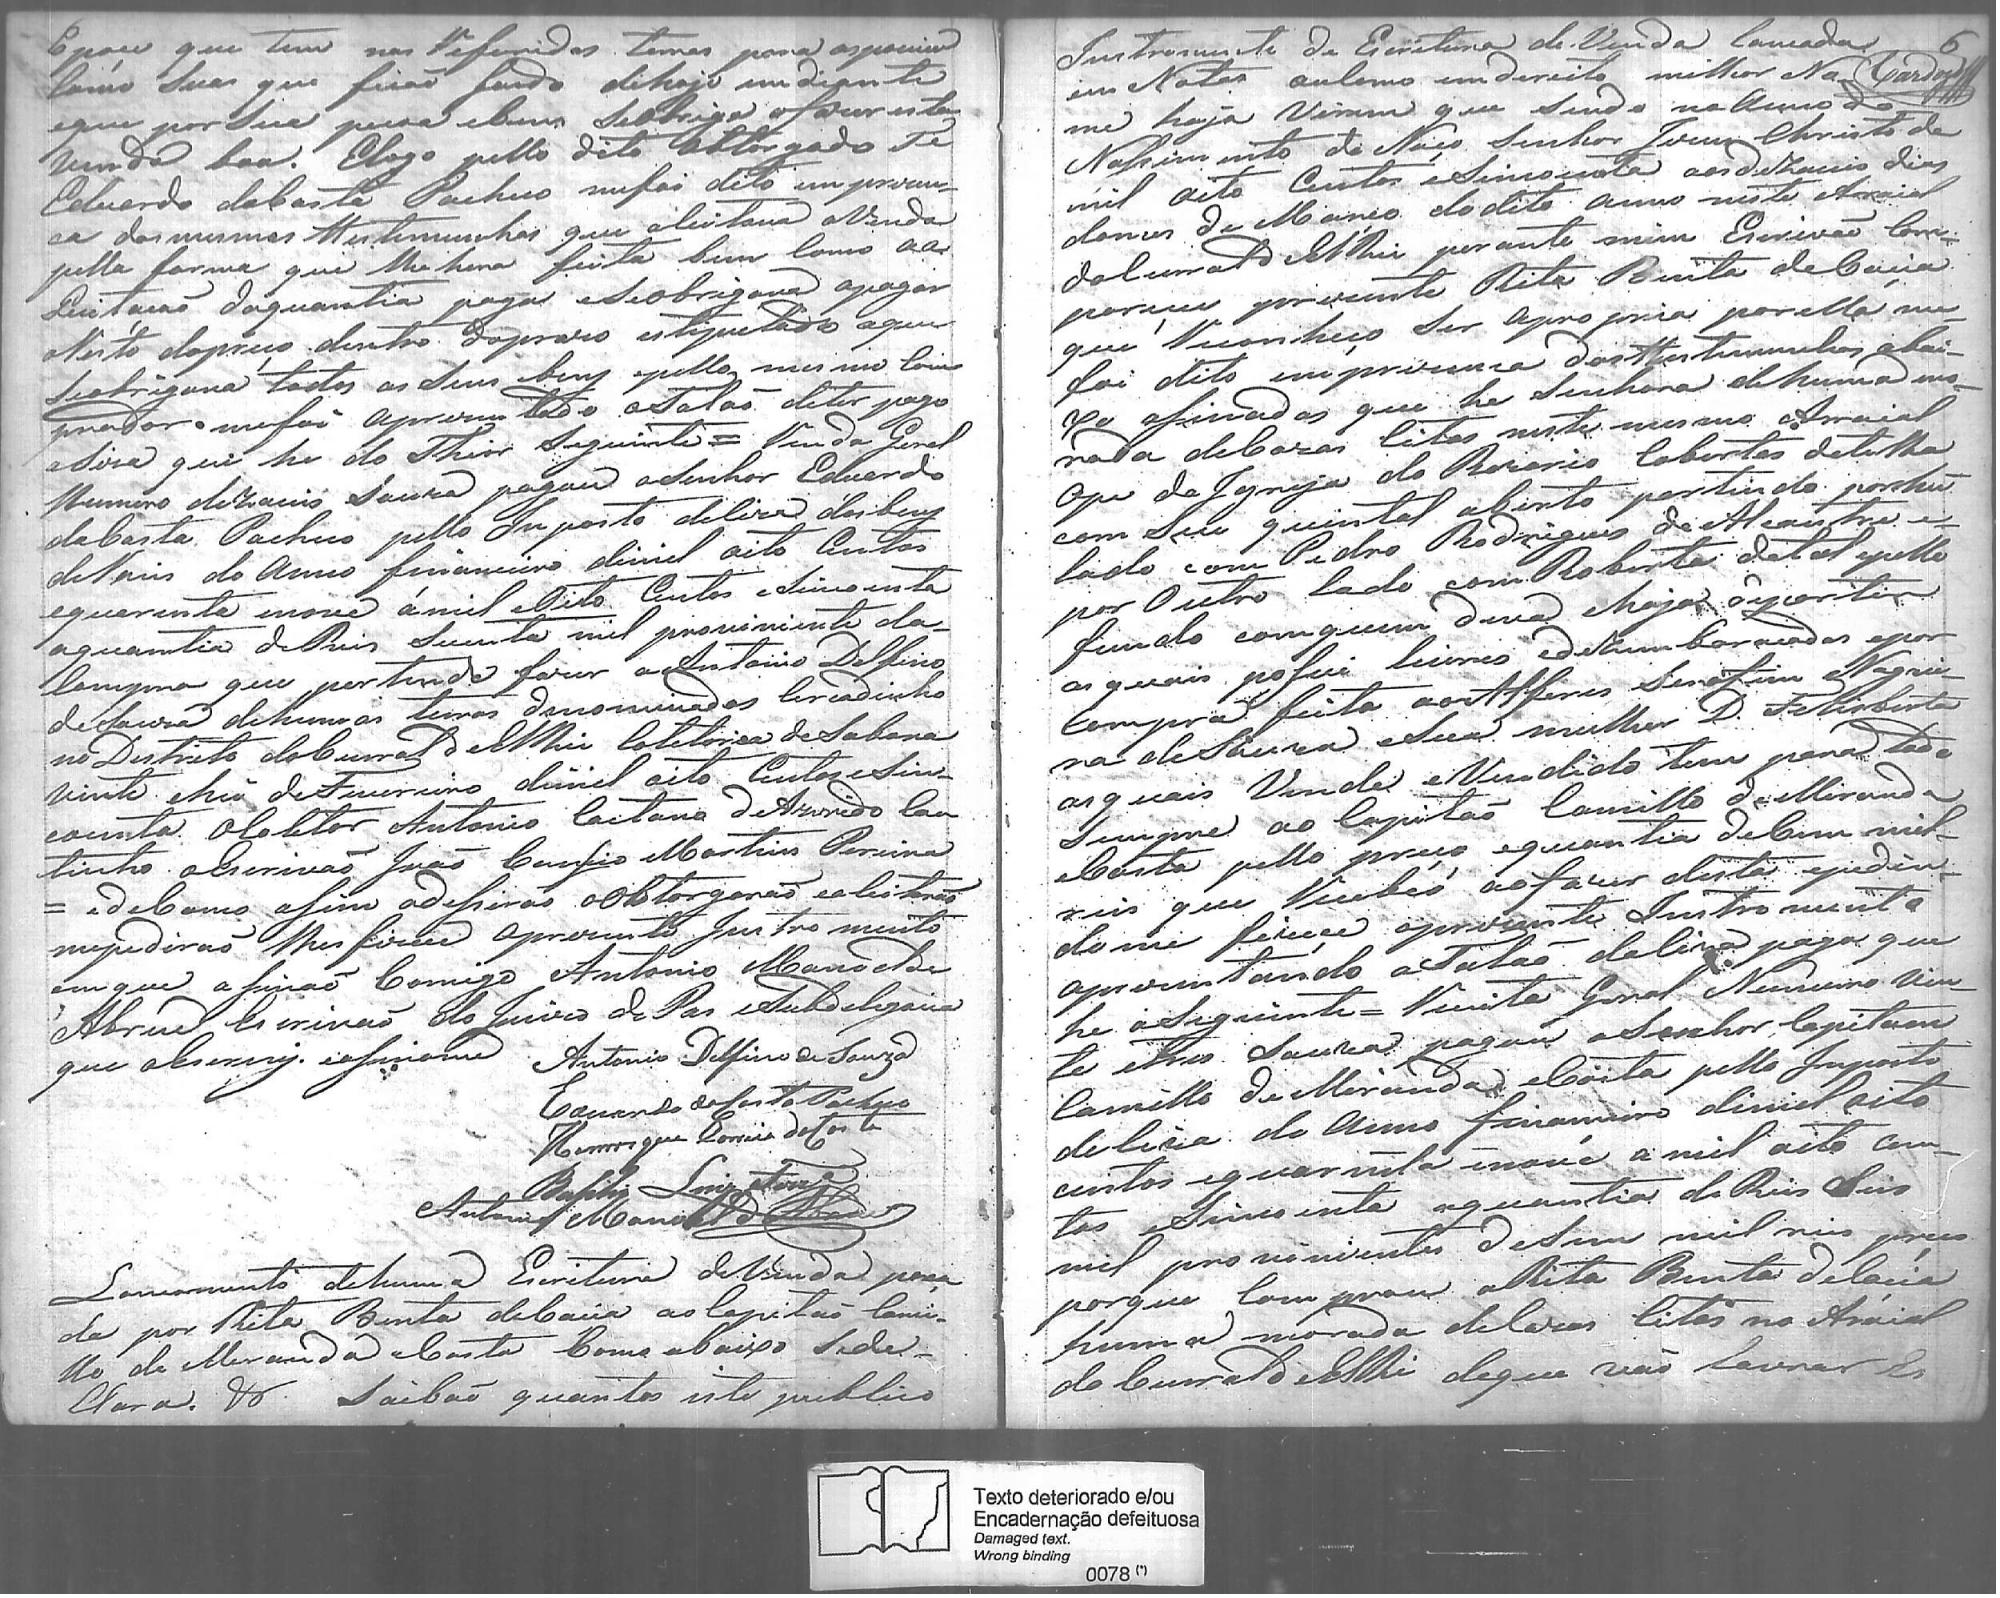 Epoce que tem nas Referidas terras para as pocuir
como Suas que ficaõ sendo dehoje em diante
eque por Sua pecoa ebens Seobriga afazer esta
venda boa. Elogo pello dito Obtorgado Te
Eduardo daCosta Pacheco mefoi dito em prezen¬
ca dasmesmas Testemunhas que aleitava aVenda
pella forma que lhe hera feita bem como aa
Quitacaõ daquantia paga eSeobrigava apagar
oResto dopreco dentro doprazo estipulado aque
Seobrigava todos os Seus bens epello mesmo Com
prador mefoi aprezentado oTalaõ deter pago
aSiza que he do Thior Seguinte = Venda Geral
Numero dezacis Souza pagou oSenhor Eduardo
daCosta Pacheco pello Imposto deSiza dosbens
deRais do Anno financeiro demil oito Centos
equarenta enove ámil eOito Centos eSincoenta
aquantia deReis Secenta mil proveniente da
Compra que pertende fazer aAntonio Delfino
deSouza dehumas terras denominadas Cercadinho
no Destrito doCurral delRei Coletoria deSabara
vinte ehú deFevereiro demil oito Centos eSin¬
coenta. OColetor Antonio Caetano deAzeredo Cou
tinho oEscrivaõ Joaõ Martins Pereira
= edeComo asim odiseraõ oObtorgaraõ eaCeitaraõ
mepediraõ lhes fizece oprezente Instromento
emque asinaõ Comigo Antonio Manoel de
Abreu Escrivaõ do Juizo de Pas eSubdelegacia
que oEscrevy. easinome Antonio Delfino de Souza
Eduardo da Costa Pacheco
Henrique Correia daCosta
Antonio Manoel de Abreu
Lancamento dehuma Escritura deVenda paça
da por Rita Benta deCacia aoCapitaõ Cami¬
llo de Meranda eCosta Como abaixo Sede¬
Clara. &. Saibaõ quantos este publico
6
Cardozo
Instromento de Escritura deVenda Lancada
em Notas ou como em dereito milhor No
me haja Virem que Sendo noAnno do
Nassimento de Noço Senhor Jezus Christo de
mil oito Centos eSincoenta aosdezacis dias
domes de Março dodito anno neste Arraial
doCurral delRei perante mim Escrivaõ Com¬
pareceu prezente Rita Benta deCacia
que Reconheco Ser apropria por ella me
foi dito em prezenca dasTestemunhas abai¬
xo asinadas que he Senhora dehuma mo¬
rada deCazas Citas neste mesmo Arraial
ope da Igreja do Rozario Cobertas detelha
com Seu quintal aberto partindo porhú
lado com Pedro Rodrigues de Alcantra e
por Outro lado com Roberta detal epello
fundo comquem deva ehaja departir
as quais posue livres edezembaracadas epor
Compra feita aoAlferes Serafim Nogue¬
ra de Souza eSua mulher D. Felisberta
asquais Vende eVendido tem para todo
Sempre ao Capitaõ Camillo de Miranda
eCosta pello preço equantia deCem mil
reis que Recebeo aofazer desta epedin¬
dome fizece oprezente Instromento
aprezentando oTalaõ deSiza paga que
he oSeguinte = Receita Geral Numero vin¬
te etres Souza pagou oSenhor Capitam
Camillo de Miranda eCosta pello Imposto
deSiza do Anno financeiro demil oito
centos equarenta enove a mil oito cen¬
tos eSincoenta aquantia deReis Seis
mil provenientes deSem mil reis preco
porque Comprou aRita Benta deCacia
huma morada deCazas Citas no Araial
do Curral delRei deque vaõ Lavrar Es
Texto deteriorado e/ou
Encadernação defeituosa
Damaged text.
Wrong binding
0078 (*)